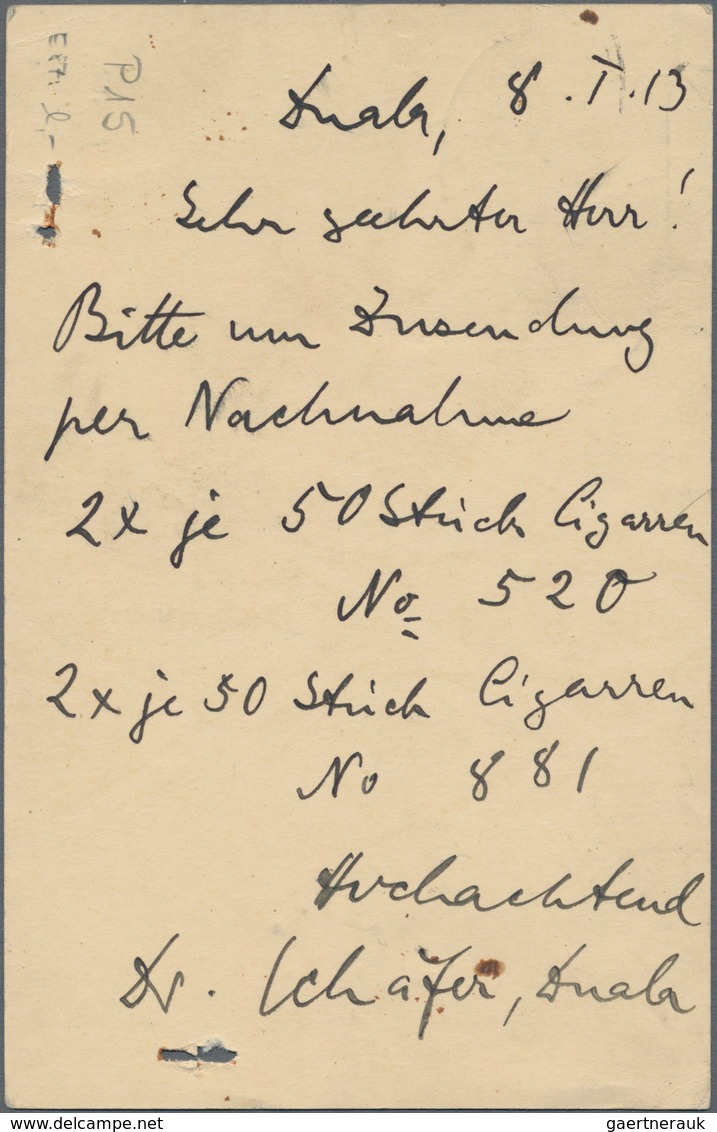 P15
Duala, 8.I.13
Sehr geehrter Herr!
Bitte um Zusendung
per Nachnahme
2x je 50 Stück Cigarren
No 520
2x je 50 Stück Cigarren
No 881
Hochachtend
Dr. Schäfer, Duala
gaertnerauk